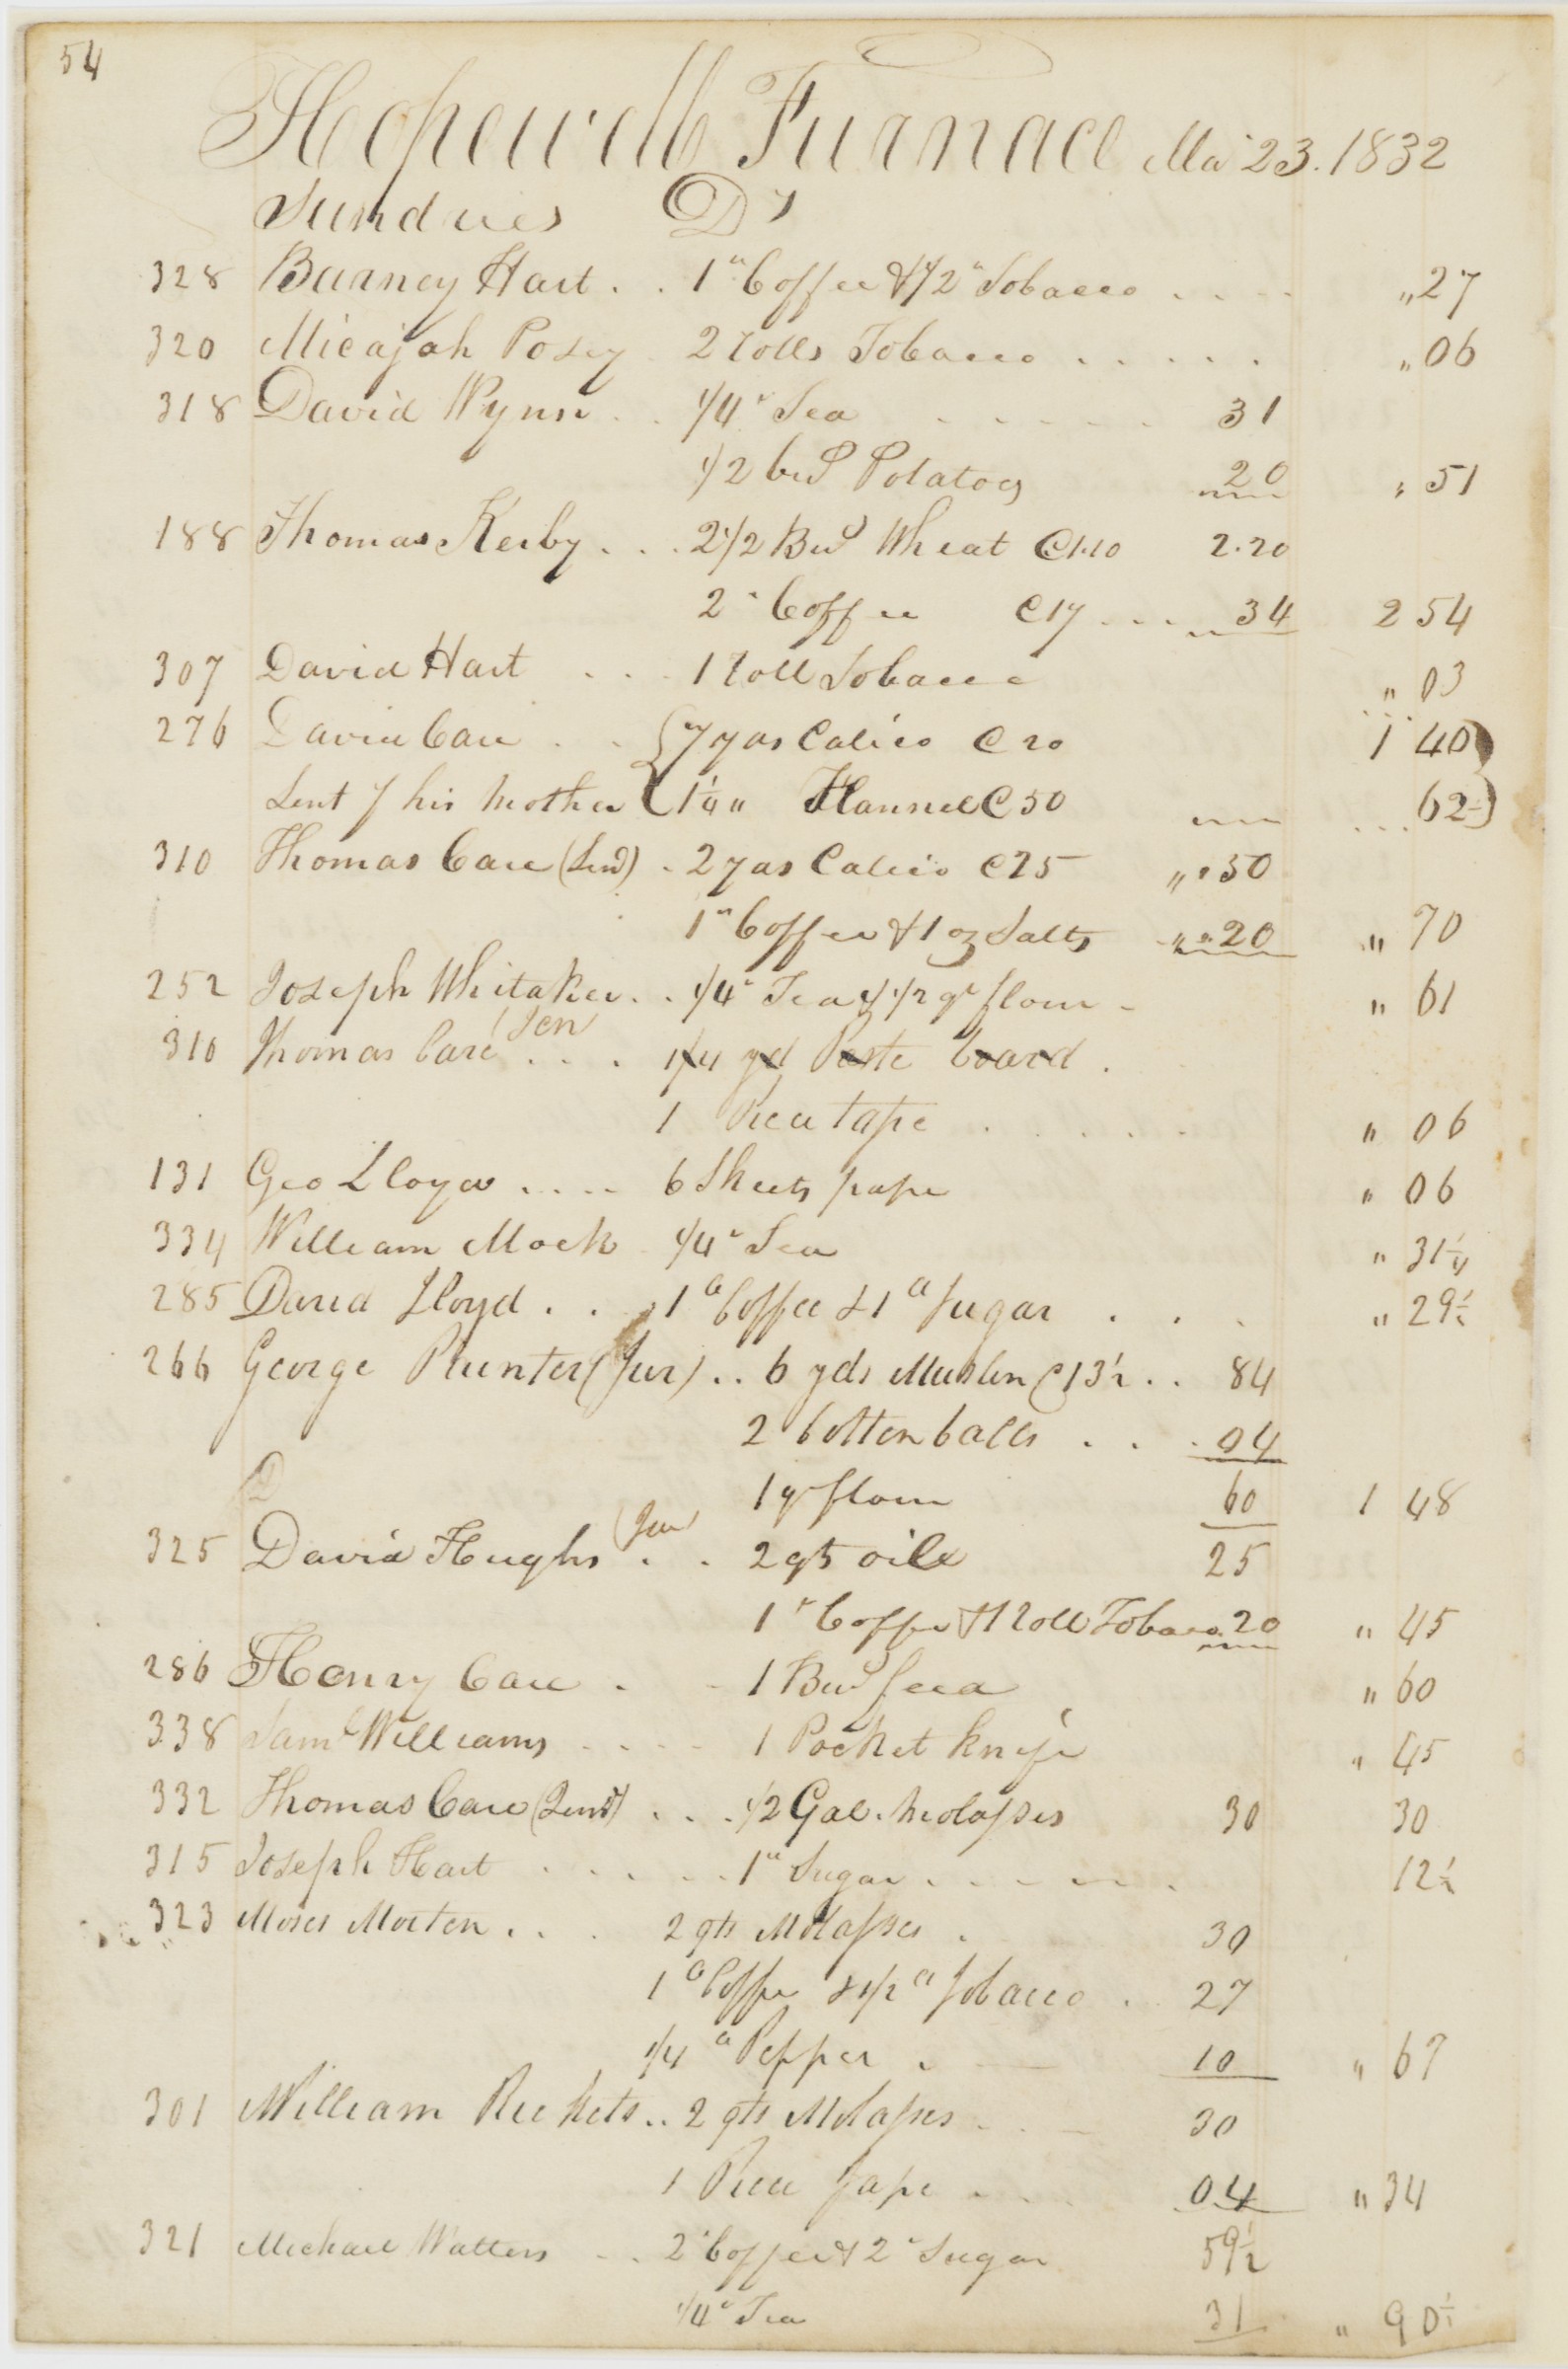 54
Hopewell Furnace Ma 23. 1832
Sundries Dr
328 Barney Hart . . 1" Coffee & 1/2" Tobacco . . . . "27
320 Micajah Posey 2 rolls Tobacco . . . . . "06
318 David Wynn . . 1/4" Tea . . . . . 31
1/2 bus Potatoes 20 " 51
188 Thomas Kerby . . . 2 1/2 Bus Wheat @1.10 2.20
2" Coffee @17 . . . 34 2 54
307 David Hart . . . 1 roll Tobacco " 03
276 David Care . . 7 yds Calico @ 20 1 40
Sent by his Mother 1 1/4 " Flannel @ 50 62
310 Thomas Care (Senr) . 2 yds Calico @25 " "50
1" Coffee & 1 oz Salts " "20 " 70
252 Joseph Whitaker . . 1/4" Tea & 1/2 qr flour - " 61
310 Thomas Care (Sen . . . 1/4 yd Paste board .
1 Piece tape . . . . . " 06
131 Geo Lloyd . . . . 6 Sheets pape " 06
334 William Mock 1/4" Tea " 31 1/4
285 David Lloyd . . 1" Coffee & 1" Sugar . . . " 29 1/2
266 George Plunter (Jur) . . 6 yds Muslin @ 13 1/2 . . 84
2 Cotten balls . . . 04
D 1 qr flour 60 1 48
325 David Hughs (Jun . . 2 qts oile 25
1" Coffee & 1 roll Tobaco. 20 " 45
286 Henry Care . - 1 Bus feed " 60
338 Saml Williams . . . . 1 Pocket knife " 45
332 Thomas Care (Junr) . . . 1/2 Gal. Molasses 30 30
315 Joseph Hart . . . . . 1" Sugar . . . . . 12 1/2
323 Moses Morten . . . 2 qts Molasses . 30
1" Coffee & 1/2" Tobacco . 27
1/4" Pepper . 10 " 67
301 William Rickets . . 2 qts Molasses . . 30
1 Piece Tape . . . 04 " 34
321 Michael Watters . . 2" Coffee & 2" Sugar 59 1/2
1/4" Tea 31 " 90 1/2